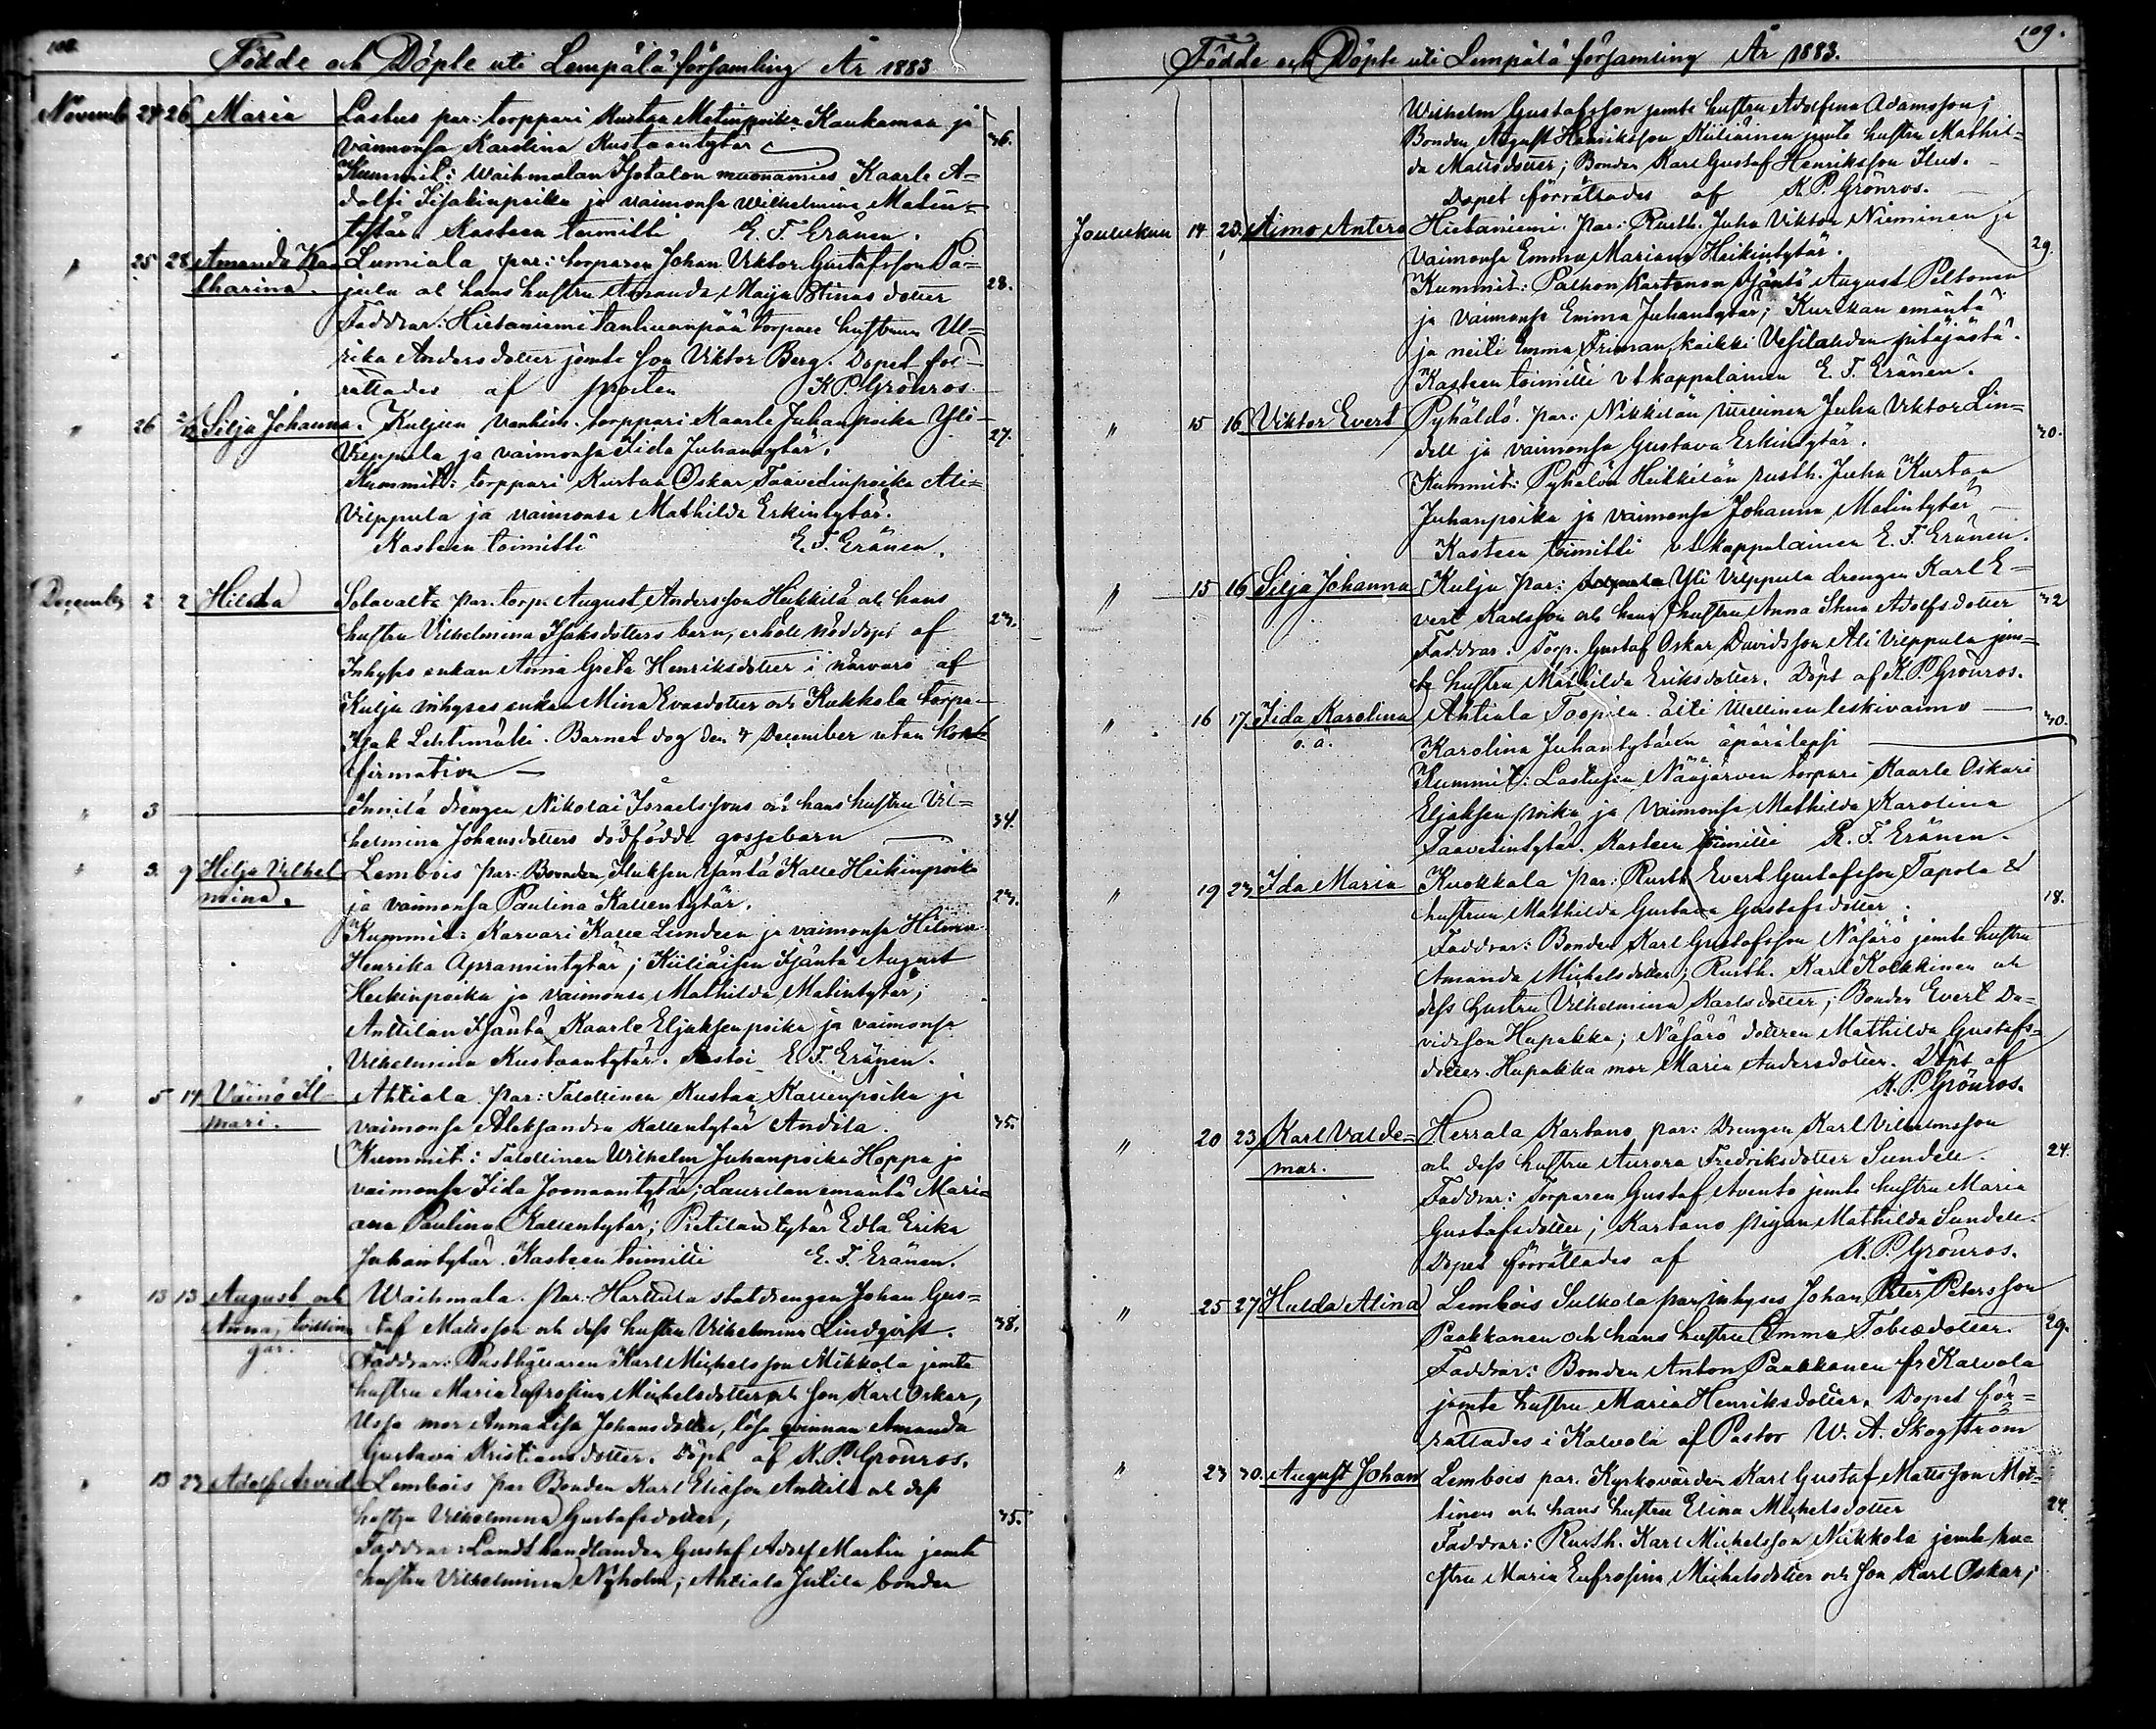 108.
Födde och Döpte uti Lempälä församling År 1883
Novemb 24 26 Maria Lastus par. torppari Kustaa Matinpoika Kaukamaa ja 36.
vaimonsa Karolina Kustaantytär
Kummit: Waihmalan Isotalon muonamies Kaarle A-
dolfi Iisakinpoika ja vaimonsa Wilhelmina Matin-
tytär. Kasteen toimitti E. F. Eränen.
" 25 28 Amanda Ka- Lumiala par: torparen Johan Viktor Gustafsson Pa-
tharina. jula ok hans hustru Amanda Maija Stinas dotter 28.
Faddrar: Hietaniemi Tanhuanpää torpare hustrun Ul-
rika Anders dotter jemte son Viktor Berg. Dopet för-
rättades af K. P. Grönros
" 26 2/12 Silja Johanna. Kuljun torppari Kaarle Juhanpoika Yli- 27.
Vilppula ja vaimonsa Iida Juhantytär.
Kummit: torppari Kustaa Oskar Taavedinpoika Ali-
Vilppula ja vaimonsa Mathilda Erkintytär.
Kasteen toimitti E. F. Eränen.
December 2 2 Hilda Sotavalta par. torp. August Andersson Heikkilä och hans 23.
hustru Vilhelmina Isaksdotters barn, erhöll nöddop af
Inhyses enkan Anna Greta Henriksdotter i närvaro af
Kulju inhyses enkan Mina Evasdotter och Kukkola torpa-
Isak Lehtimäki. Barnet dog den 4 December utan kon-
firmation —
" 3 — Innilä drengen Nikolai Israelssons och hans hustru Vil- 34.
helmina Johansdotters dödfödde gossebarn —
" 3. 9 Hilja Vilhel- Lembois par: Bonden Isäntä Kalle Heikinpoika
mina. ja vaimonsa Paulina Kallentytär. 23.
Kummit: Karvari Kalle Lindeen ja vaimonsa Hilma
Henrika Apramintytär; Kiiliäisen Isäntä August
Heikinpoika ja vaimonsa Mathilda Matintytär;
Anttilan Isäntä Kaarle Eljaksenpoika ja vaimonsa
Vilhelmina Kustaantytär. Kastoi E. F. Eränen.
" 5 14 Väinö Il- Ahtiala. par: Talollinen Kustaa Kallenpoika ja
mari. vaimonsa Aleksandra Kallentytär Andila. 35.
Kummit: Talollinen Wilhelm Juhanpoika Hoppu ja
vaimonsa Iida Joonaantytär; Laurilan emäntä Mari-
ana Paulina Kallentytär; Pietilän tytär Edla Erika
Juhantytär. Kasteen toimitti E. F. Eränen.
" 13 13 August och Waihmala. Par. Harttula statdrengen Johan Gus-
Anna, tvillin- taf Mattsson och dess hustru Vilhelmina Lindqvist. 38.
gar. Faddrar: Rusthållaren Karl Michelsson Mikkola jemte
hustru Maria Eufrosina Michelsdotter och son Karl Oskar,
Ussa mor Anna Lisa Johansdotter, lösa qvinnan Amanda
Gustava Kristiansdotter. Döpt af K. P. Grönros.
" 13 23 Adolf Arvid Lembois par Bonden Karl Eliasson Anttila och dess
hustru Vilhelmina Gustafsdotter, 35.
Faddrar: Landthandlanden Gustaf Adolf Martin jemte
hustru Vilhelmina Nyholm; Ahtiala Jutila bonden
109.
Födde och Döpte uti Lempälä församling År 1883.
Wilhelm Gustafsson jemte hustru Adolfina Adamsson;
Bonden August Henriksson Kiiliäinen jemte hustru Mathil-
da Mattsdotter; Bonden Karl Gustaf Henriksson Ilus.
Dopet förrättades af K. P. Grönros.
Joulukuu 14 23. Aimo Antero Hietaniemi. Par: Rusth. Juha Viktor Nieminen ja 29.
vaimonsa Emma Mariana Heikintytär.
Kummit: Palhon Kartanon Isäntä August Peltonen
ja vaimonsa Emma Juhantytär; Kurikan emäntä
ja neiti Emma Friman, kaikki Vesilahden pitäjästä.
Kasteen toimitti vt kappalainen E. F. Eränen.
" 15 16 Viktor Evert Pyhältö. par: Nikkilän itsellinen Juha Viktor Lin- 30.
dell ja vaimonsa Gustava Erkintytär.
Kummit: Pyhälön Heikkilän rusth. Juha Kustaa
Juhanpoika ja vaimonsa Johanna Matintytär —
Kasteen toimitti vt. kappalainen E. F. Eränen.
" 15 16 Silja Johanna Kulju par: Yli Vilppula drengen Karl E- 32
vert Karlsson och hans hustru Anna Stina Adolfsdotter
Faddrar: Torp. Gustaf Oskar Davidsson Ali Vilppula jem-
te hustru Mathilda Eriksdotter. Döpt af K. P. Grönros.
" 16 17. Iida Karolina Ahtiala Toopila. äiti itsellinen leskivaimo — 30.
o. ä. Karolina Juhantytären äpärälapsi
Kummit: Lastusen Nääjärven torpari Kaarle Oskari
Eljaksen poika ja vaimonsa Mathilda Karolina
Taavetintytär. Kasteen toimitti E. F. Eränen.
" 19 23 Ida Maria Kuokkala par: Rusth Evert Gustafsson Tapola & 18.
hustrun Mathilda Gustava Gustafsdotter.
Faddrar: Bonden Karl Gustafsson Näsärö jemte hustru
Amanda Michelsdotter; Rusth. Karl Kolkkinen och
dess hustru Vilhelmina Karlsdotter; Bonden Evert Da-
vidsson Hupakka; Näsärö dottren Mathilda Gustafs-
dotter. Hupakka mor Maria Andersdotter. Döpt af
K. P. Grönros.
" 20 23 Karl Valde- Herrala Kartano par: Drengen Karl Vilhelmsson
mar. och dess hustru Aurora Fredriksdotter Sundell. 24.
Faddrar: Torparen Gustaf Avento jemte hustru Maria
Gustafsdotter; Kartano pigan Mathilda Sundell.
Dopet förrättades af K. P. Grönros.
" 25 27 Hulda Alina Lembois Sulkola par inhyses Johan Peter Petersson
Paakkanen och hans hustru Emma Tobiædotter. 29.
Faddrar: Bonden Anton Paakkanen fr Kalvola
jemte hustru Maria Henriksdotter. Dopet för-
rättades i Kalvola af Pastor W. A. Skogström
" 23 30. August Johan Lembois par. Kyrkovärden Karl Gustaf Mattsson Mot-
tinen och hans hustru Elina Michelsdotter 24.
Faddrar: Rusth. Karl Michelsson Mikkola jemte hu-
stru Maria Eufrosina Michelsdotter och son Karl Oskar;